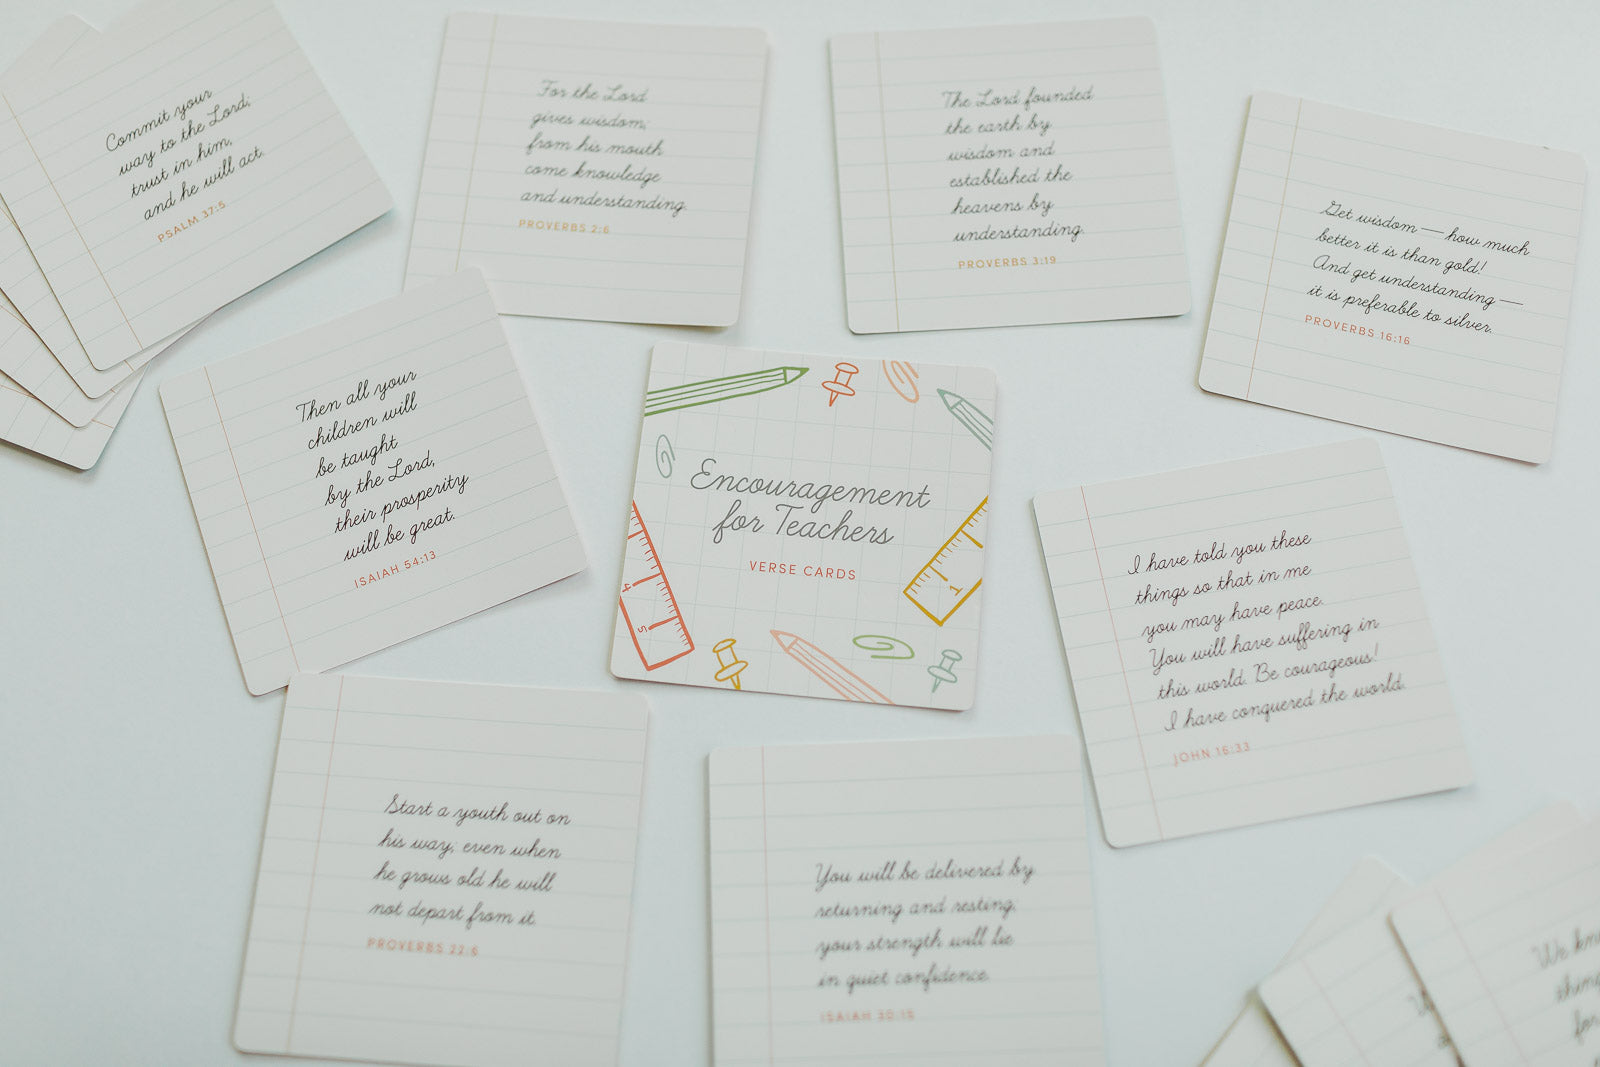 Commit your
way to the Lord;
trust in him,
and he will act.
PSALM 37:5
For the Lord
gives wisdom;
from his mouth
come knowledge
and understanding.
PROVERBS 2:6
The Lord founded
the earth by
wisdom and
established the
heavens by
understanding.
PROVERBS 3:19
Get wisdom — how much
better it is than gold!
And get understanding —
it is preferable to silver.
PROVERBS 16:16
Then all your
children will
be taught
by the Lord,
their prosperity
will be great.
ISAIAH 54:13
Encouragement
for Teachers
VERSE CARDS
4
5
1
I have told you these
things so that in me
you may have peace.
You will have suffering in
this world. Be courageous!
I have conquered the world.
JOHN 16:33
Start a youth out on
his way; even when
he grows old he will
not depart from it.
PROVERBS 22:6
You will be delivered by
returning and resting;
your strength will lie
in quiet confidence.
ISAIAH 30:15
We
for